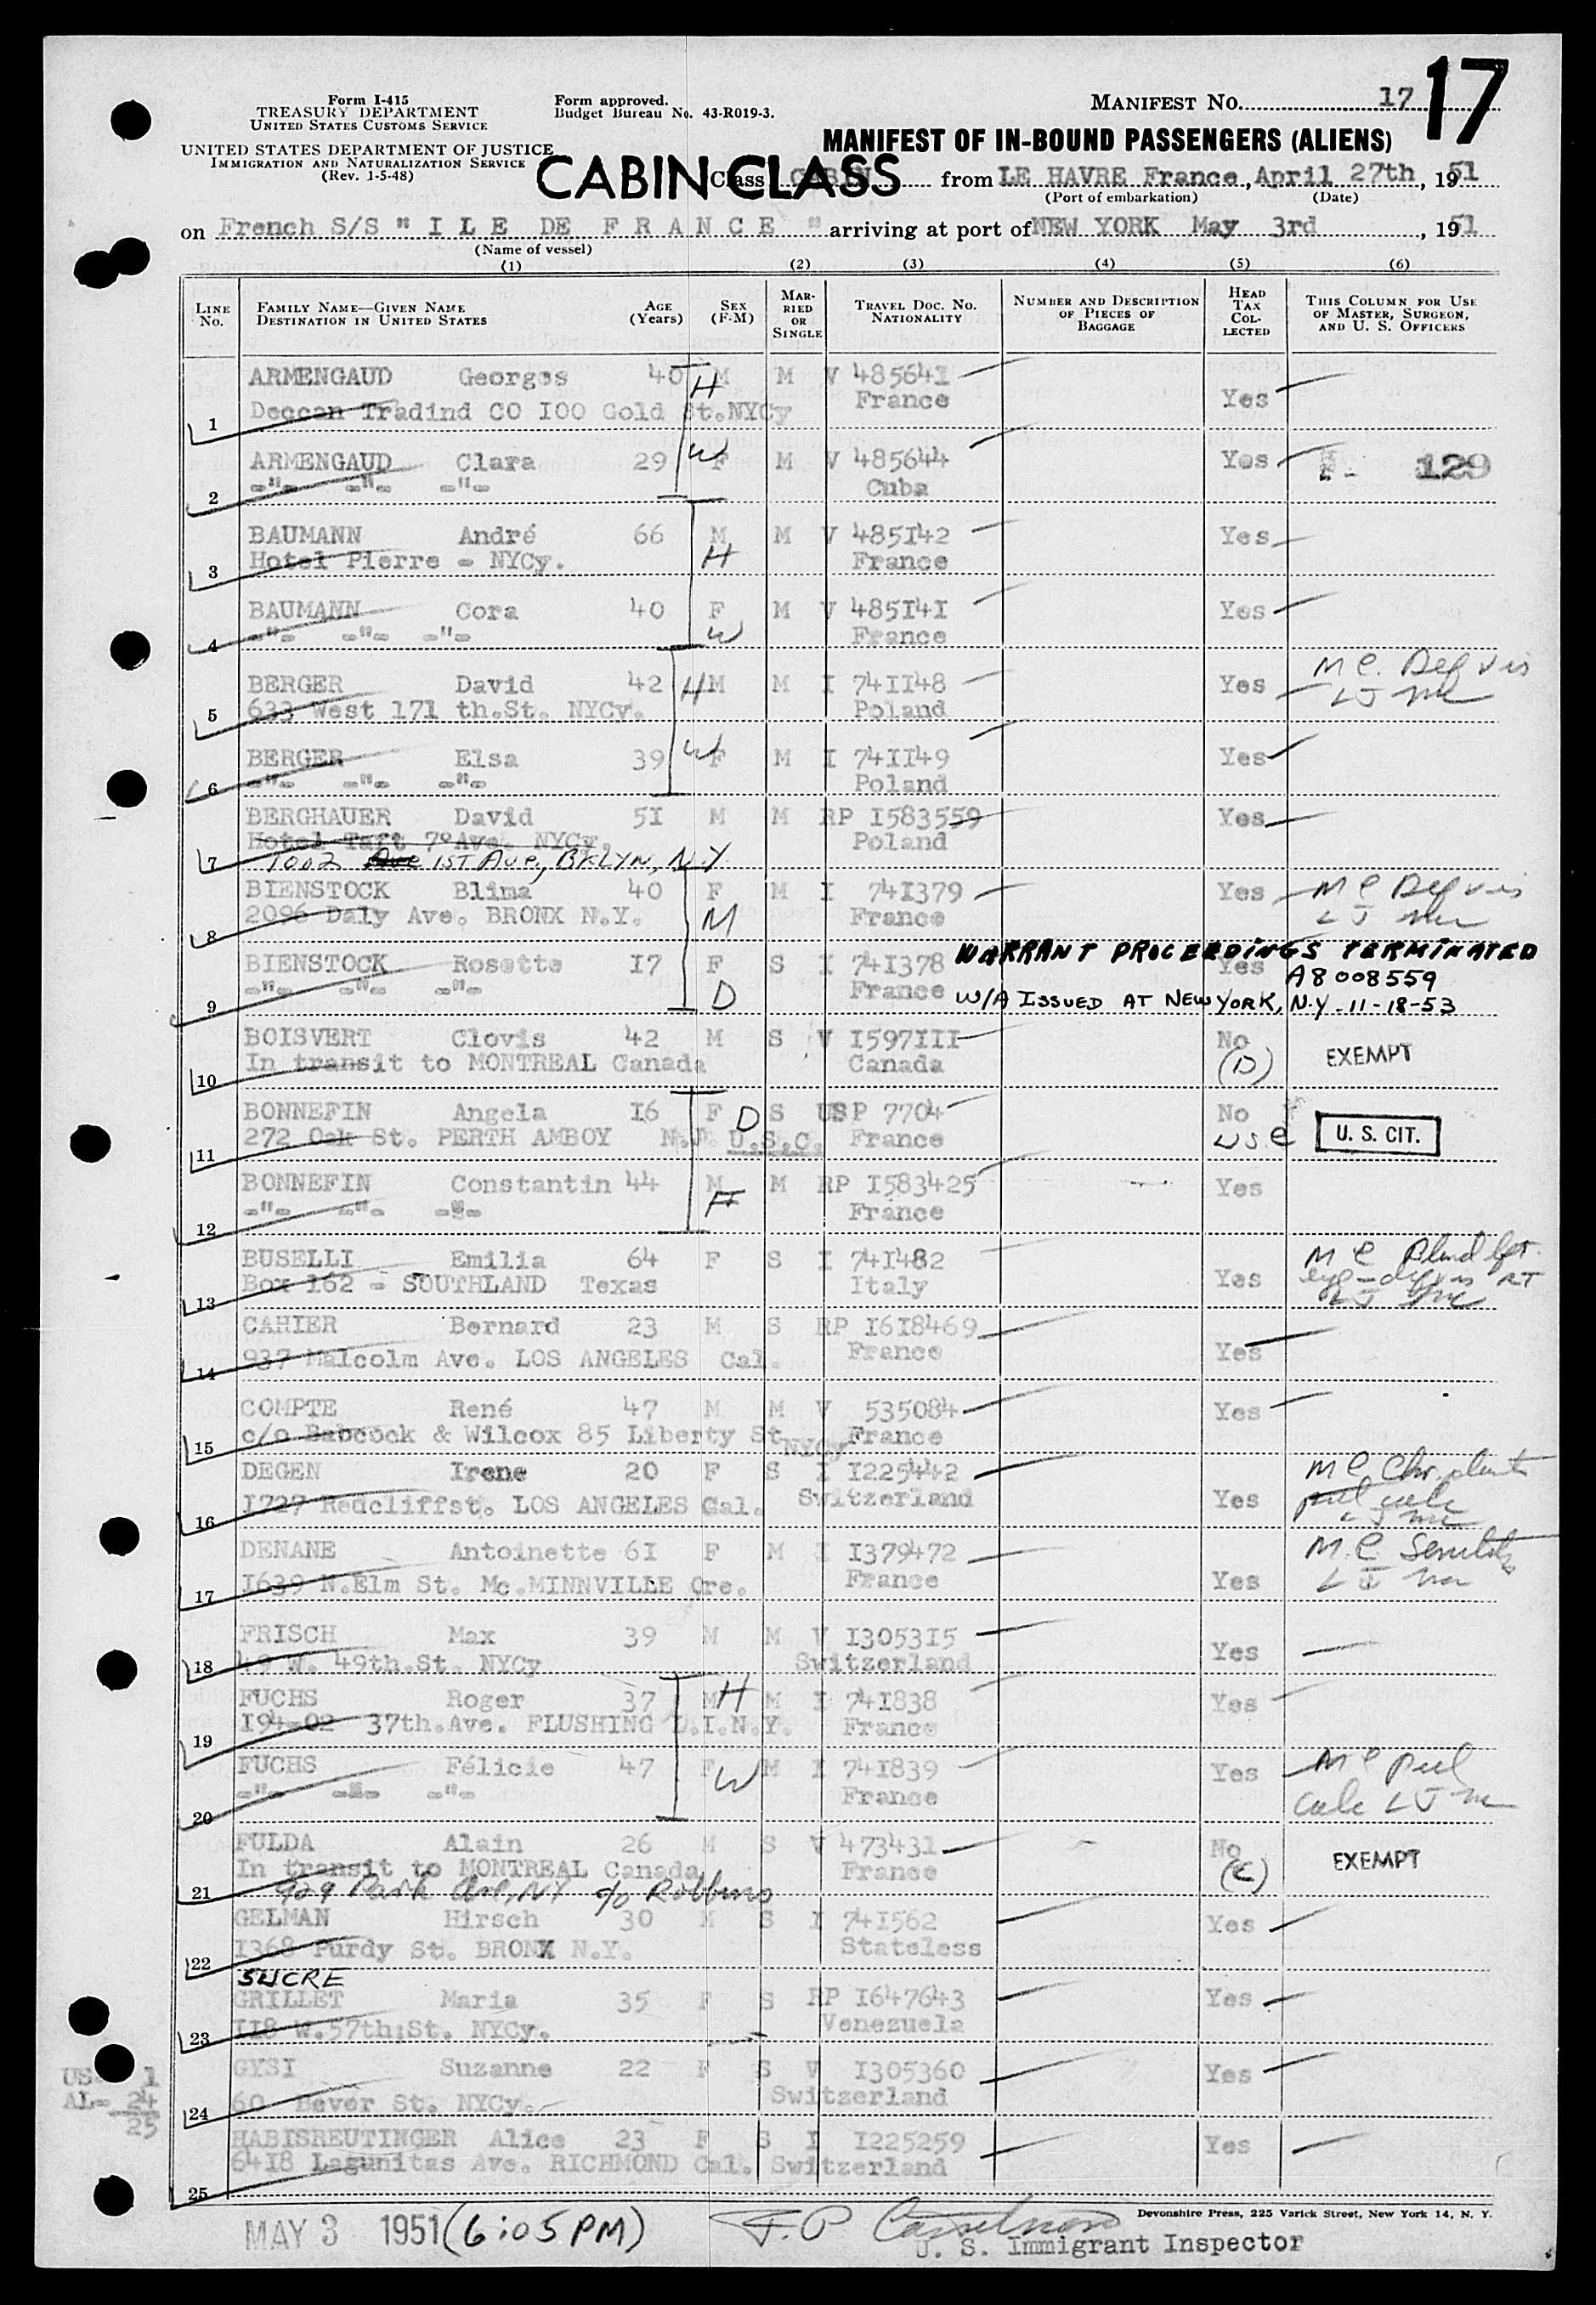 Form I-415
TREASURY DEPARTMENT
UNITED STATES CUSTOMS SERVICE
UNITED STATES DEPARTMENT OF JUSTICE
IMMIGRATION AND NATURALIZATION SERVICE
(Rev. 1-5-48)
Form approved.
Budget Bureau No. 43-R019-3.
MANIFEST NO. 17
17
MANIFEST OF IN-BOUND PASSENGERS (ALIENS)
CABIN CLASS
Class CABIN from LE HAVRE France, April 27th, 1951
(Port of embarkation) (Date)
on French S/S "ILE DE FRANCE" arriving at port of NEW YORK May 3rd, 1951
(Name of vessel)
(1) (2) (3) (4) (5) (6)
LINE No. FAMILY NAME—GIVEN NAME DESTINATION IN UNITED STATES AGE (Years) SEX (F-M) MARRIED OR SINGLE TRAVEL DOC. NO. NATIONALITY NUMBER AND DESCRIPTION OF PIECES OF BAGGAGE HEAD TAX COLLECTED THIS COLUMN FOR USE OF MASTER, SURGEON, AND U. S. OFFICERS
ARMENGAUD Georges 40 M H M V 485641
1 Deccan Tradind CO 100 Gold St.NYCy France Yes
ARMENGAUD Clara 29 W F M V 485644 Yes 129
2 -"- -"- -"- Cuba
BAUMANN André 66 M M V 485142 Yes
3 Hotel Pierre - NYCy. H France
BAUMANN Cora 40 F M V 485141 Yes
4 -"- -"- -"- W France
BERGER David 42 H M M I 741148 Yes M C. Def vis
5 633 West 171 th.St. NYCy. Poland
BERGER Elsa 39 W F M I 741149 Yes
6 -"- -"- -"- Poland
BERGHAUER David 51 M M RP 1583559 Yes
Hotel Taft 7°Ave. NYCy. Poland
7 1002 Ave 1ST AVE, BKLYN, N.Y
BIENSTOCK Blima 40 F M I 741379 Yes M C Def vis
8 2096 Daly Ave. BRONX N.Y. M France
WARRANT PROCEEDINGS TERMINATED
BIENSTOCK Rosette 17 F S I 741378 Yes A8 008559
9 -"- -"- -"- D France W/A ISSUED AT NEW YORK, N.Y. 11-18-53
BOISVERT Clovis 42 M S V 1597111 No
10 In transit to MONTREAL Canada Canada (D) EXEMPT
BONNEFIN Angela 16 F D S USP 7704 No
11 272 Oak St. PERTH AMBOY N.J. U.S.C. France USC U. S. CIT.
BONNEFIN Constantin 44 M M RP 1583425 Yes
12 -"- -"- -"- F France
BUSELLI Emilia 64 F S I 741482 M C Blind lft
13 Box 162 - SOUTHLAND Texas Italy Yes eye - def vis RT
CAHIER Bernard 23 M S RP 1618469
14 937 Malcolm Ave. LOS ANGELES Cal. France Yes
COMPTE René 47 M M V 535084 Yes
15 c/o Babcock & Wilcox 85 Liberty St NYCy France
DEGEN Irene 20 F S I 1225442 M C
16 1727 Redcliffst. LOS ANGELES Cal. Switzerland Yes
DENANE Antoinette 61 F M I 1379472 M.C.
17 1639 N.Elm St. Mc.MINNVILLE Ore. France Yes
FRISCH Max 39 M M V 1305315
18 49 W. 49th.St. NYCy Switzerland Yes
FUCHS Roger 37 M H M I 741838 Yes
19 194-02 37th.Ave. FLUSHING L.I.N.Y. France
FUCHS Félicie 47 F W M I 741839 Yes M C
20 -"- -"- -"- France
FULDA Alain 26 M S V 473431 No
In transit to MONTREAL Canada France (C) EXEMPT
21 929 Park Ave, NY c/o Robbins
GELMAN Hirsch 30 M S I 741562 Yes
22 1368 Purdy St. BRONX N.Y. Stateless
SUCRE
GRILLET Maria 35 F S RP 1647643 Yes
23 118 W.57th.St. NYCy. Venezuela
GYSI Suzanne 22 F S V 1305360 Yes
24 60 Bever St. NYCy. Switzerland
HABISREUTINGER Alice 23 F S I 1225259 Yes
6418 Lagunitas Ave. RICHMOND Cal. Switzerland
25
US- 1
AL- 24
25
Devonshire Press, 225 Varick Street, New York 14, N. Y.
MAY 3 1951 (6:05 PM)
U. S. Immigrant Inspector